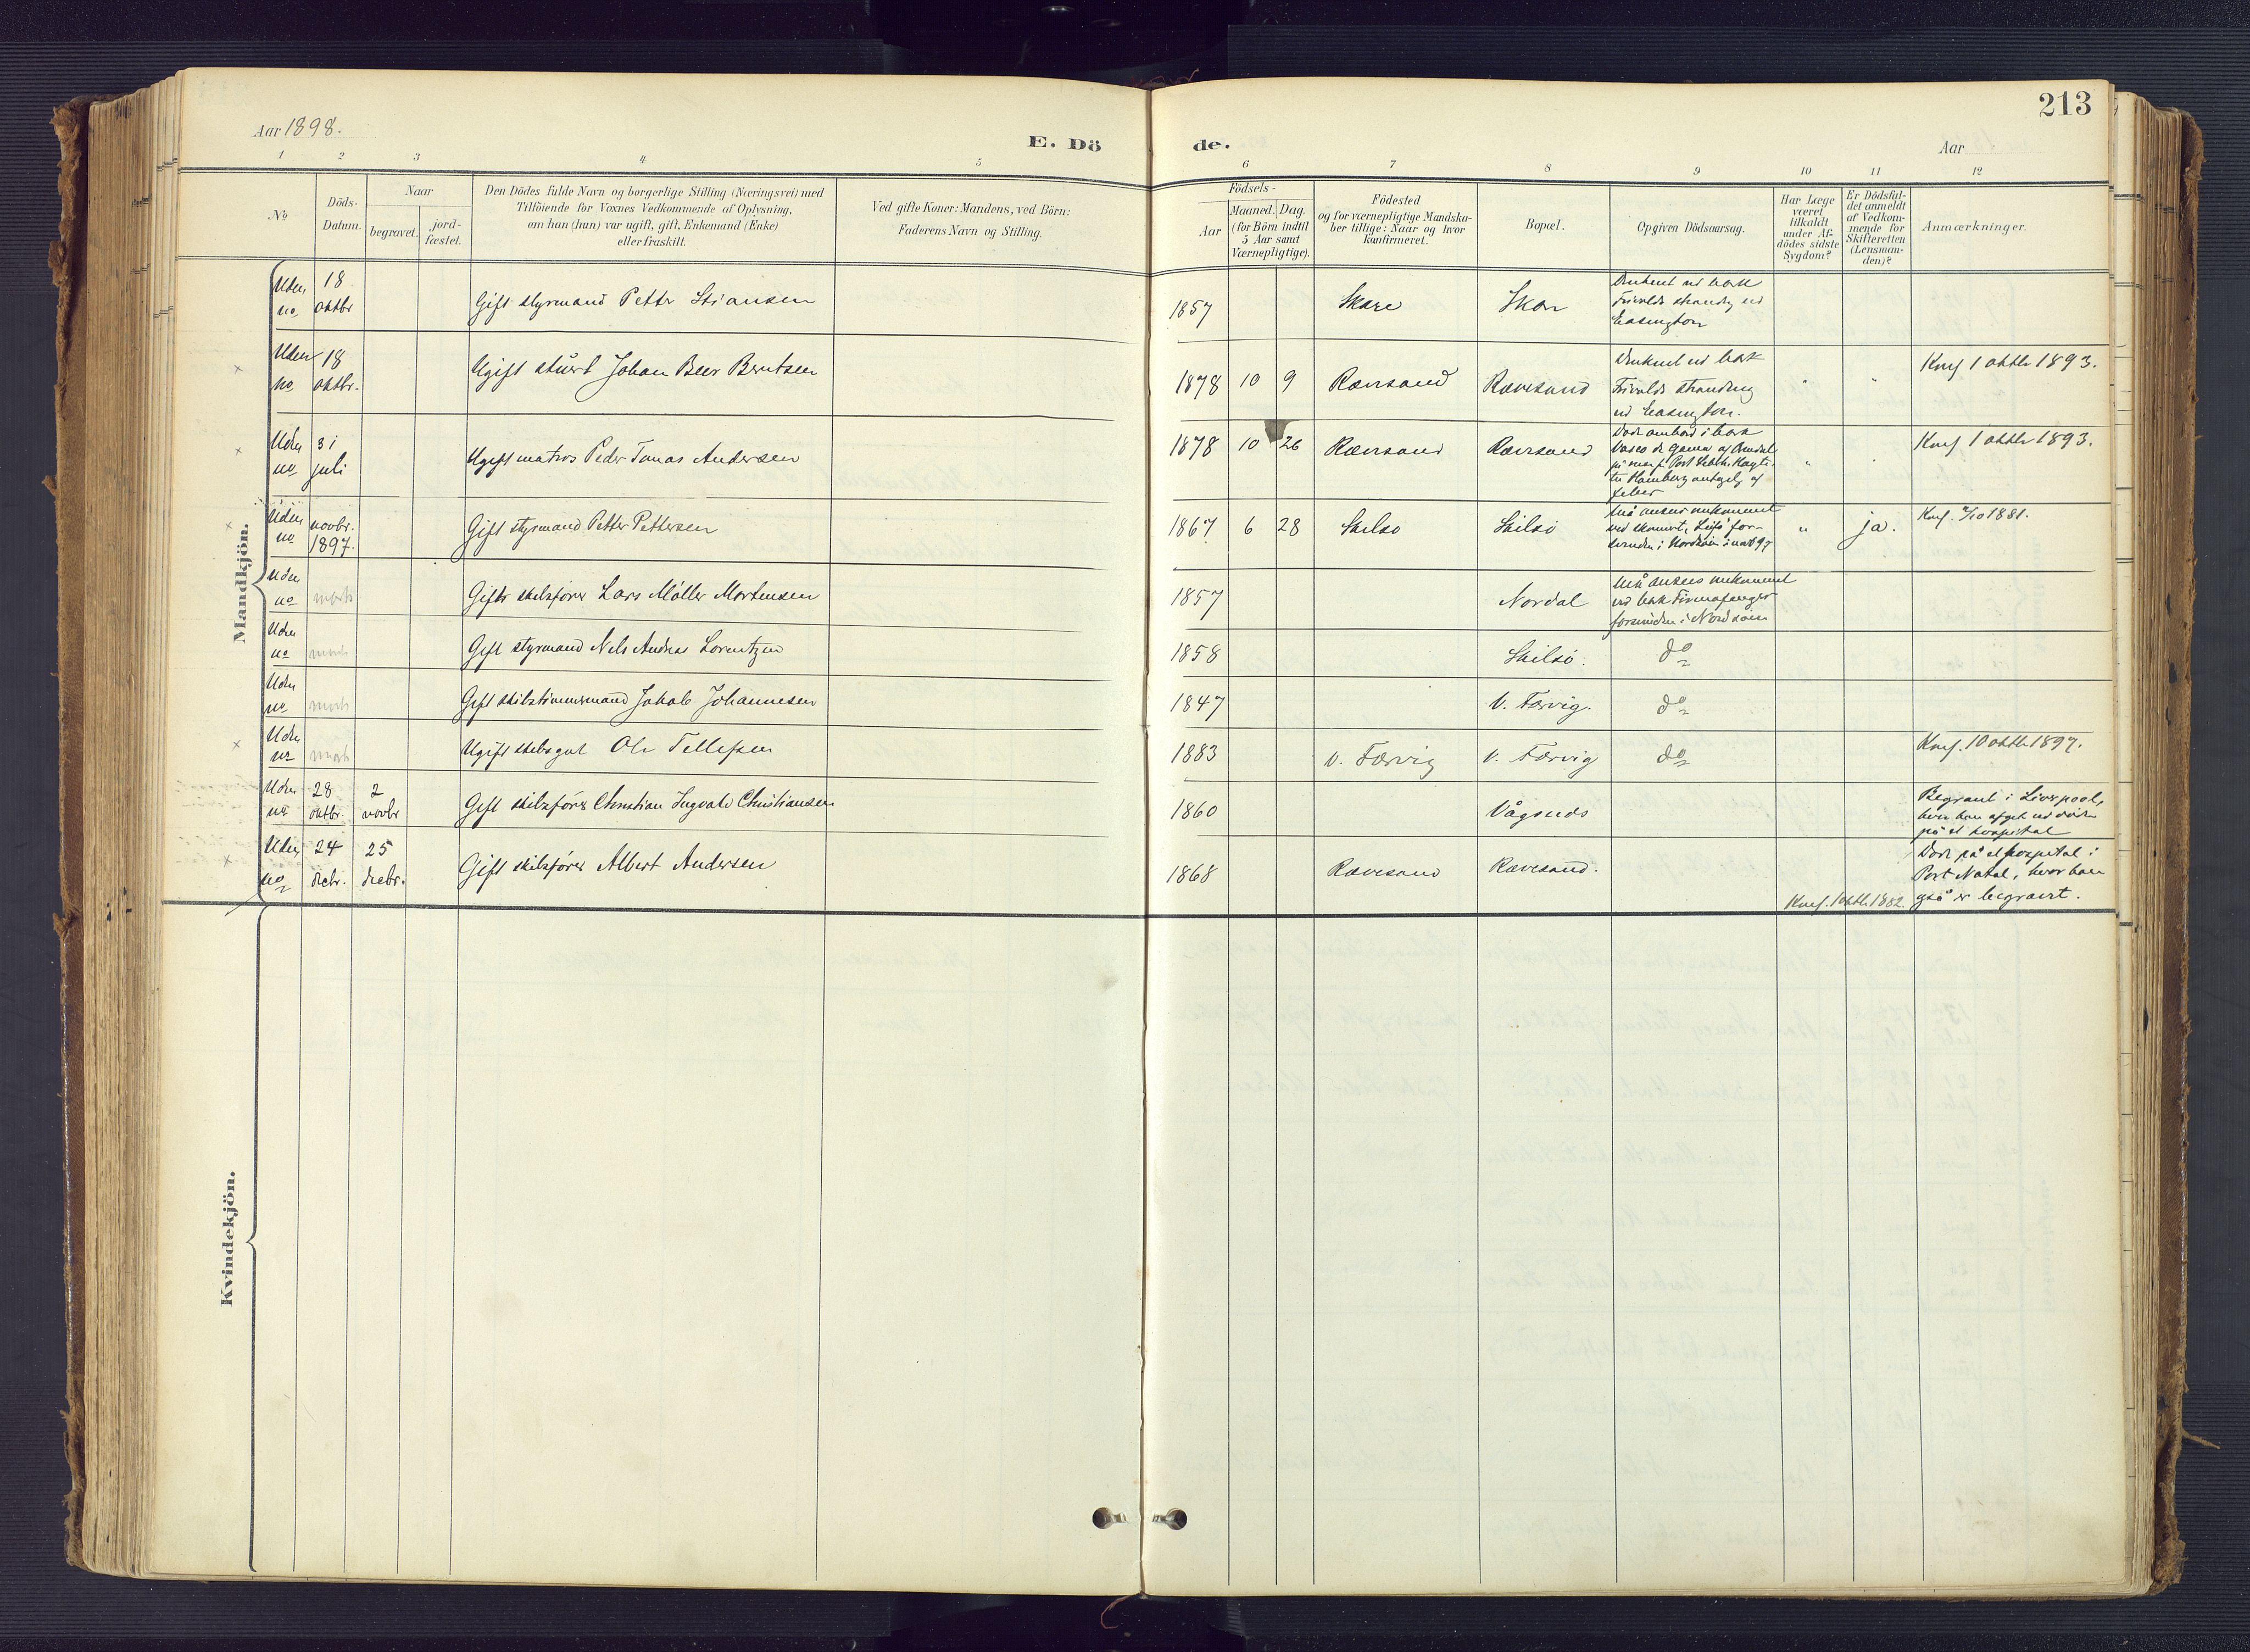 213
Aar 1898.
E. Dö
de.
Aar
1 2 3 4 5 6 7 8 9 10 11 12
No
Döds-
Datum.
Naar
begravet.
jord-
fæstet.
Den Dödes fulde Navn og borgerlige Stilling (Næringsvei) med
Tilföiende for Voxnes Vedkommende af Oplysning,
om han (hun) var ugift, gift, Enkemand (Enke)
eller fraskilt.
Ved gifte Koner: Mandens, ved Börn:
Faderens Navn og Stilling.
Födsels-
Aar
Maaned. Dag.
(for Börn indtil
5 Aar samt
Værnepligtige).
Födested
og for værnepligtige Mandska-
ber tillige: Naar og hvor
konfirmeret.
Bopæl.
Opgiven Dödsaarsag.
Har Læge
været
tilkaldt
under Af-
dödes sidste
Sygdom?
Er Dödsfal-
det anmeldt
af Vedkom-
mende for
Skifteretten
(Lensman-
den)?
Anmærkninger.
Mandkjön.
Uden no 18 oktbr Gift styrmand Petter Stiansen 1857 Skare Skare
Druknet ved bark
Frivolds stranding ved
Easington
Uden no 18 oktbr. Ugift stuert Johan Beer Berntsen 1878 10 9 Rævesand Rævesand
Druknet ved bark
Frivolds stranding
ved Easington.
" " Knf 1 oktbr 1893.
Uden no 31 juli Ugift matros Peder Tomas Andersen 1878 10 26 Rævesand Rævesand
Døde ombord i bark
Vasco de Gama af Arendal
på reise fr. Port
til Hamburg antagelig af
feber
" Knf 1 oktbr 1893.
Uden no novbr. 1897. Gift styrmand Petter Pettersen 1867 6 28 Skilsø Skilsø
Må anses omkommet
ved skonnert, for-
svunden i Nordsøen i nov 97
" ja. Knf. 1881.
Uden no marts Gift skibsfører Lars Møller Mortensen 1857 Nordal
Må anses omkommet
ved bark
forsvunden i Nordsøen
Uden no marts Gift styrmand Nels Andreas Lorentzen 1858 Skilsø. do
Uden no marts Gift skibstømmermand Jakob Johannesen 1847 V. Færvig. do
Uden no marts Ugift skibsgut Ole Tellefsen 1883 V. Færvig V. Færvig do Knf. 10 oktbr 1897.
Uden no 28 oktbr. 2 novbr Gift skibsfører Christian Ingvald Christiansen 1860 Vågsnes
Begravet i Liverpool,
hvor han afgik ved døden
på et hospital
Uden no 24 decbr. 25 decbr. Gift skibsfører Albert Andersen 1868 Rævesand Rævesand.
Døde på et hospital i
Port Natal, hvor han
også er begravet.
Knf. 1 oktbr 1882.
Kvindekjön.